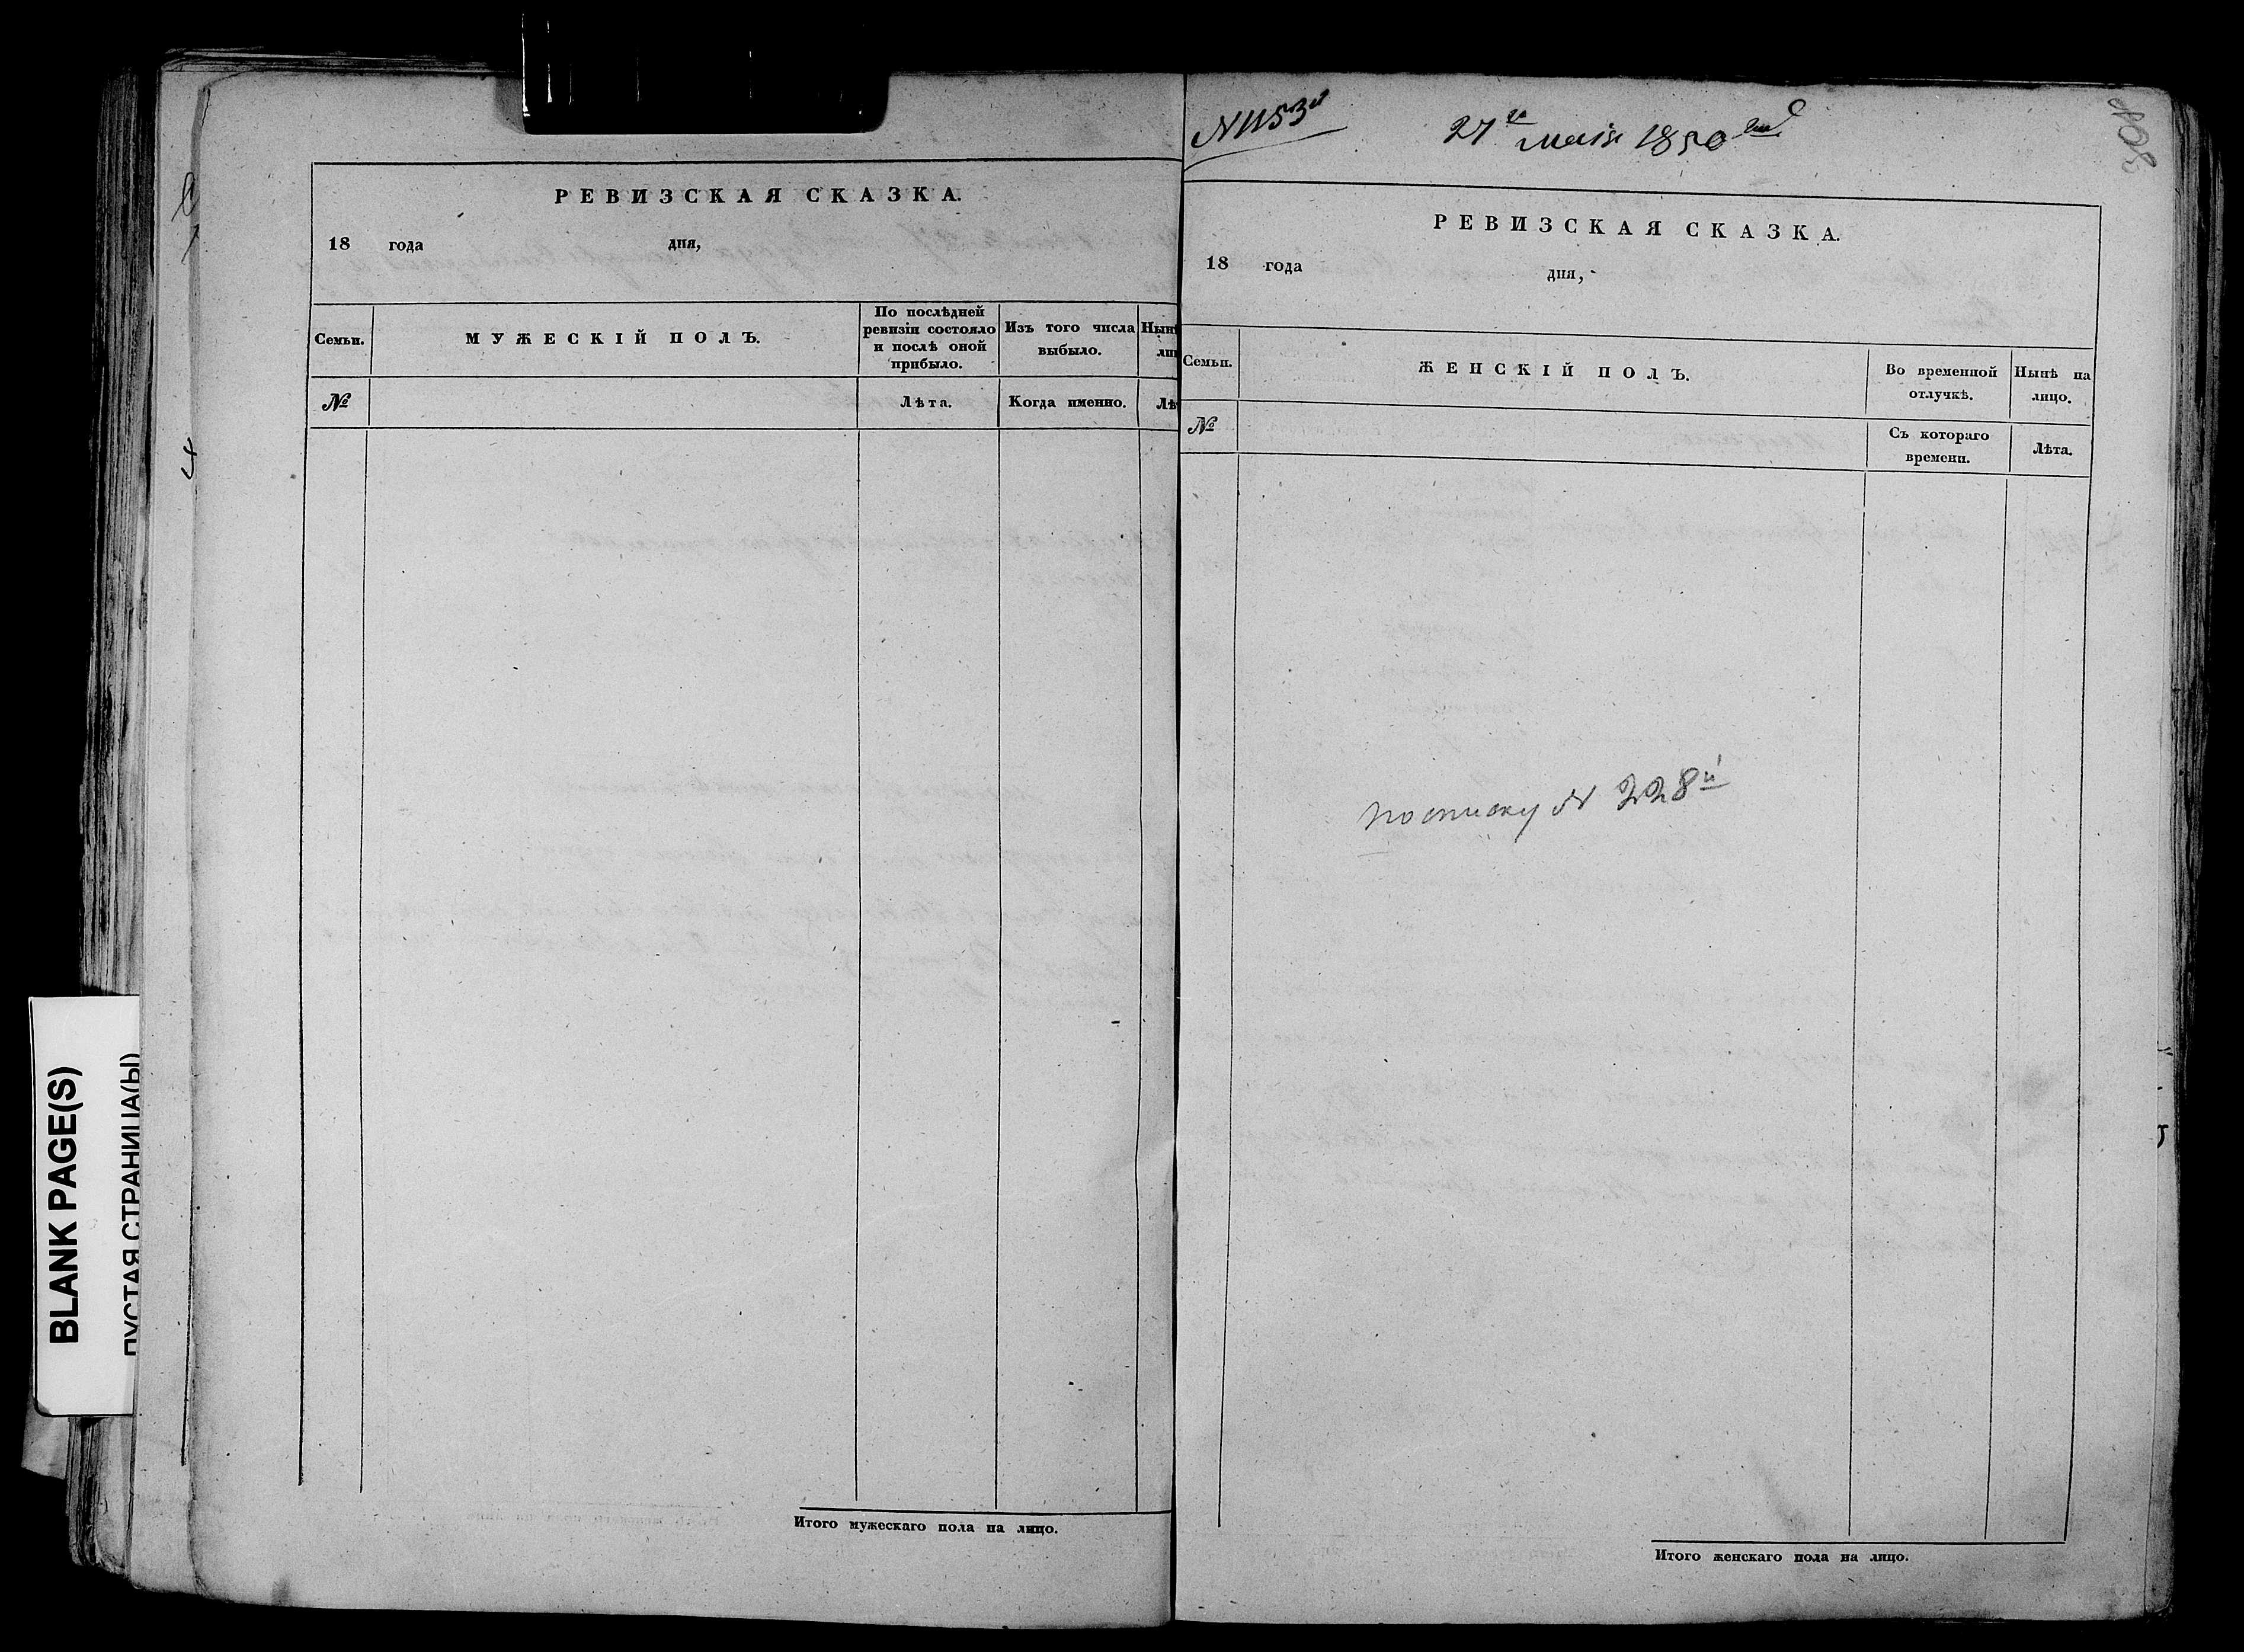 РЕВИЗСКАЯ СКАЗКА.
18 года дня,
Семьи. МУЖЕСКІЙ ПОЛЪ. По послѣдней ревизіи состояло и послѣ оной прибыло. Изъ того числа выбыло. Нын
№ Лѣта. Когда именно. Лѣ
Итого мужескаго пола на лицо.
N 1153й
27го маія 1850 года
308
РЕВИЗСКАЯ СКАЗКА.
18 года дня,
Семьи. ЖЕНСКІЙ ПОЛЪ. Во временной отлучкѣ. Нынѣ на лицо.
№ Съ котораго времени. Лѣта.
по списку N 228й
Итого женскаго пола на лицо.
BLANK PAGE(S)
ПУСТАЯ СТРАНИЦА(Ы)